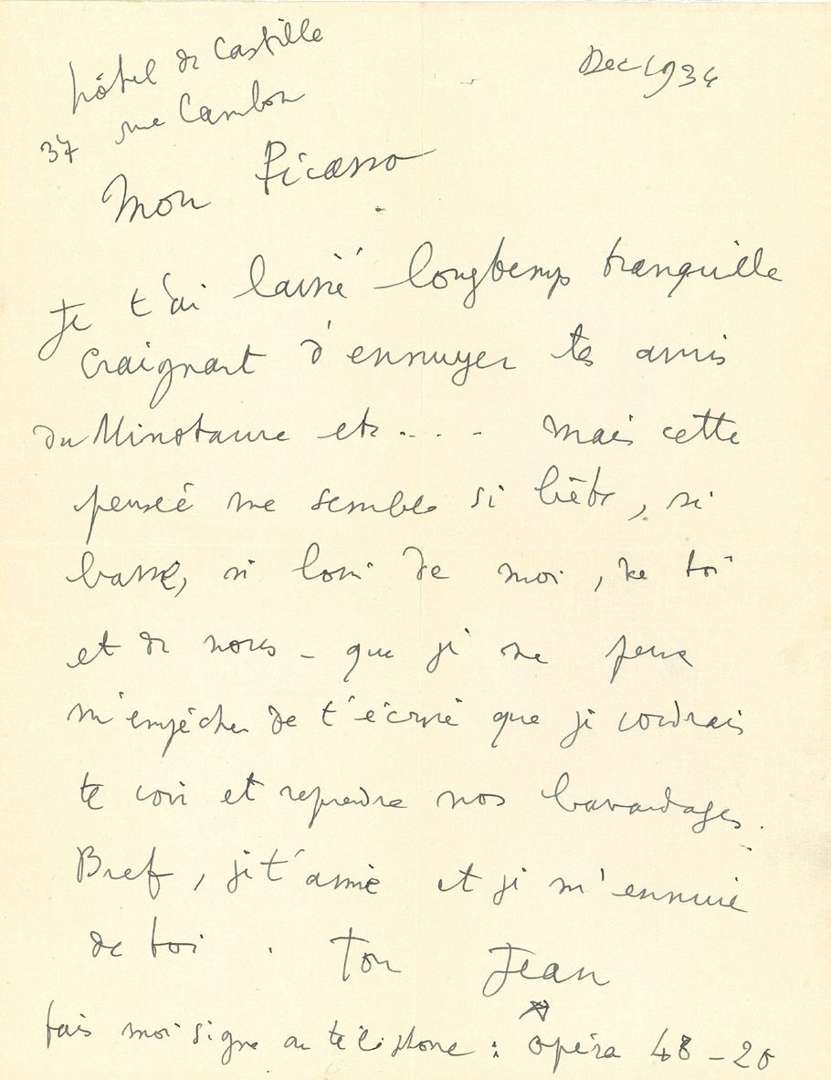 hôtel de Castille
Dec 1934
37 rue Cambon
Mon Picasso
Je t'ai laissé longtemps tranquille
craignant d'ennuyer tes amis
du Minotaure etc.... mais cette
pensée me semble si bête, si
basse, si loin de moi, de toi
et de nous - que je ne peux
m'empêcher de t'écrire que je voudrais
te voir et reprendre nos bavardages.
Bref, je t'aime et je m'ennuie
de toi. Ton Jean
fais moi signe au téléphone : opéra 48-20